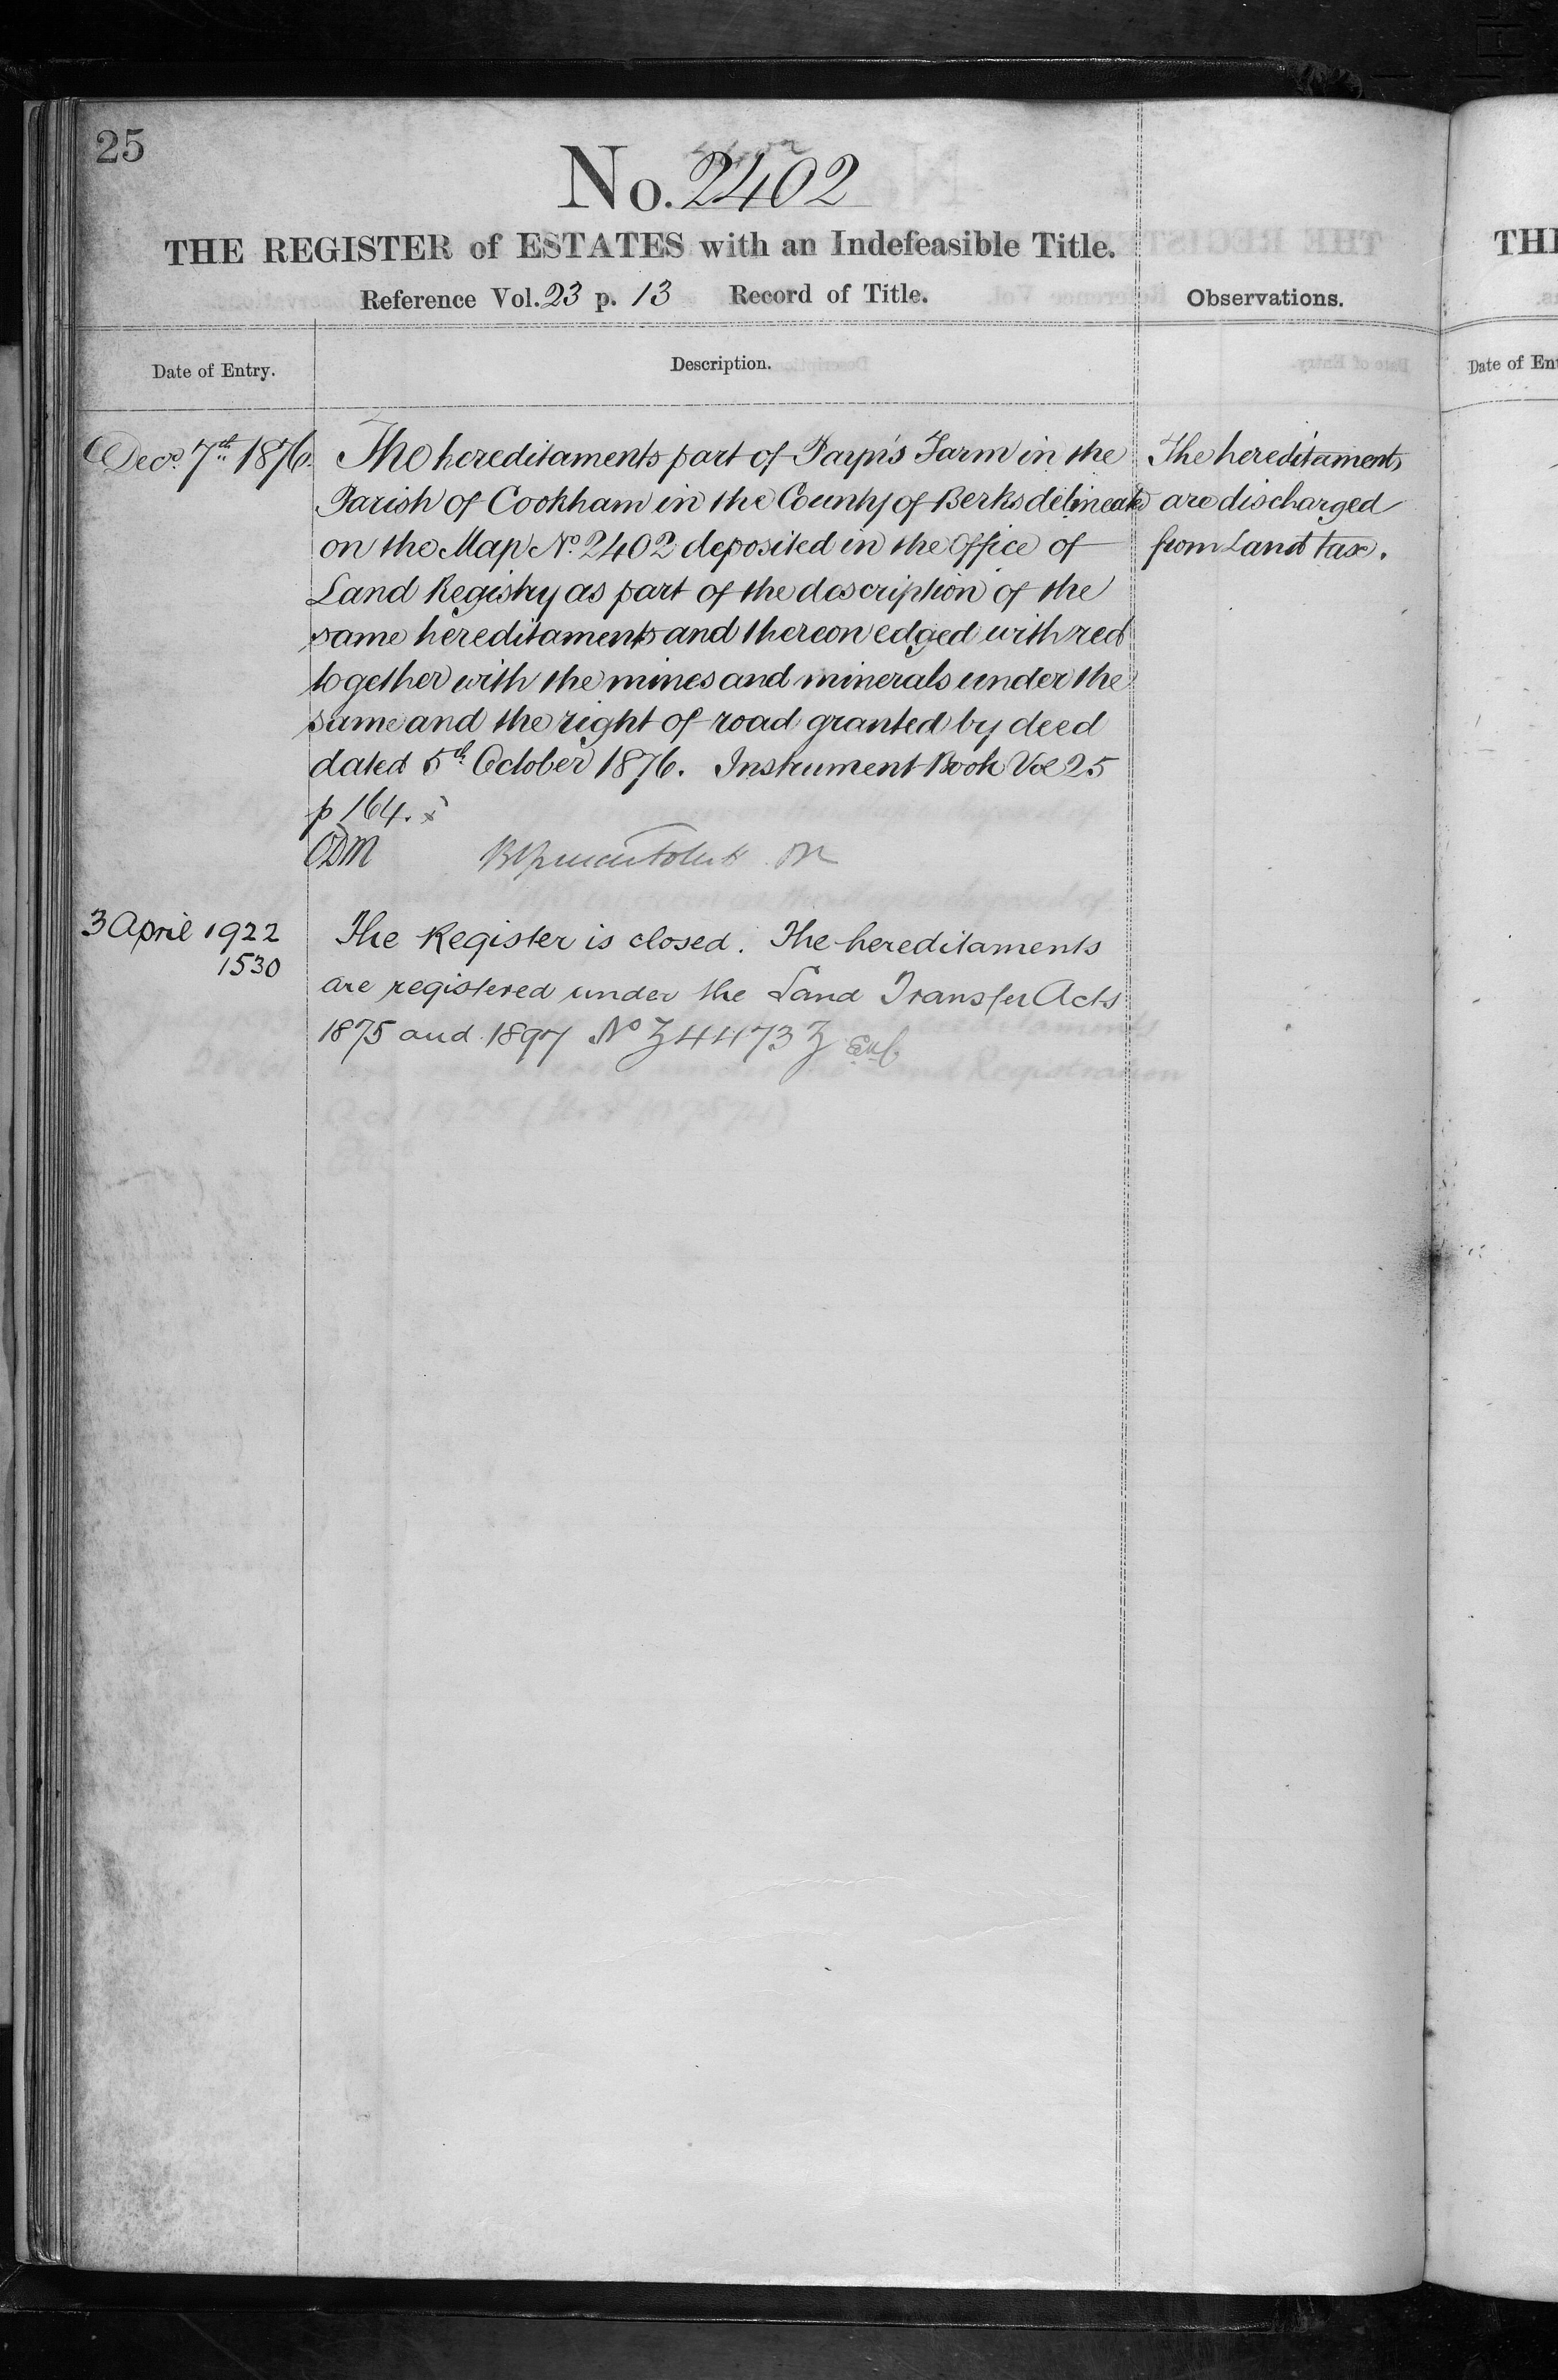 25
No. 2402
THE REGISTER of ESTATES with an Indefeasible Title.
Reference Vol. 23 p. 13 Record of Title.
Observations.
Date of Entry.
Description.
Decr. 7th 1876.
The hereditaments part of Farm in the
Parish of Cookham in the County of Berks delineated
on the Map No. 2402 deposited in the Office of
Land Registry as part of the description of the
same hereditaments and thereon edged with red
together with the mines and minerals under the
same and the right of road granted by deed
dated 5th October 1876. Instrument Book Vol 25
p 164.
The hereditaments
are discharged
from Land tax.
3 April 1922
1530
The Register is closed. The hereditaments
are registered under the Land Transfer Acts
1875 and 1897 No Z4473Z
THE
Date of Ent